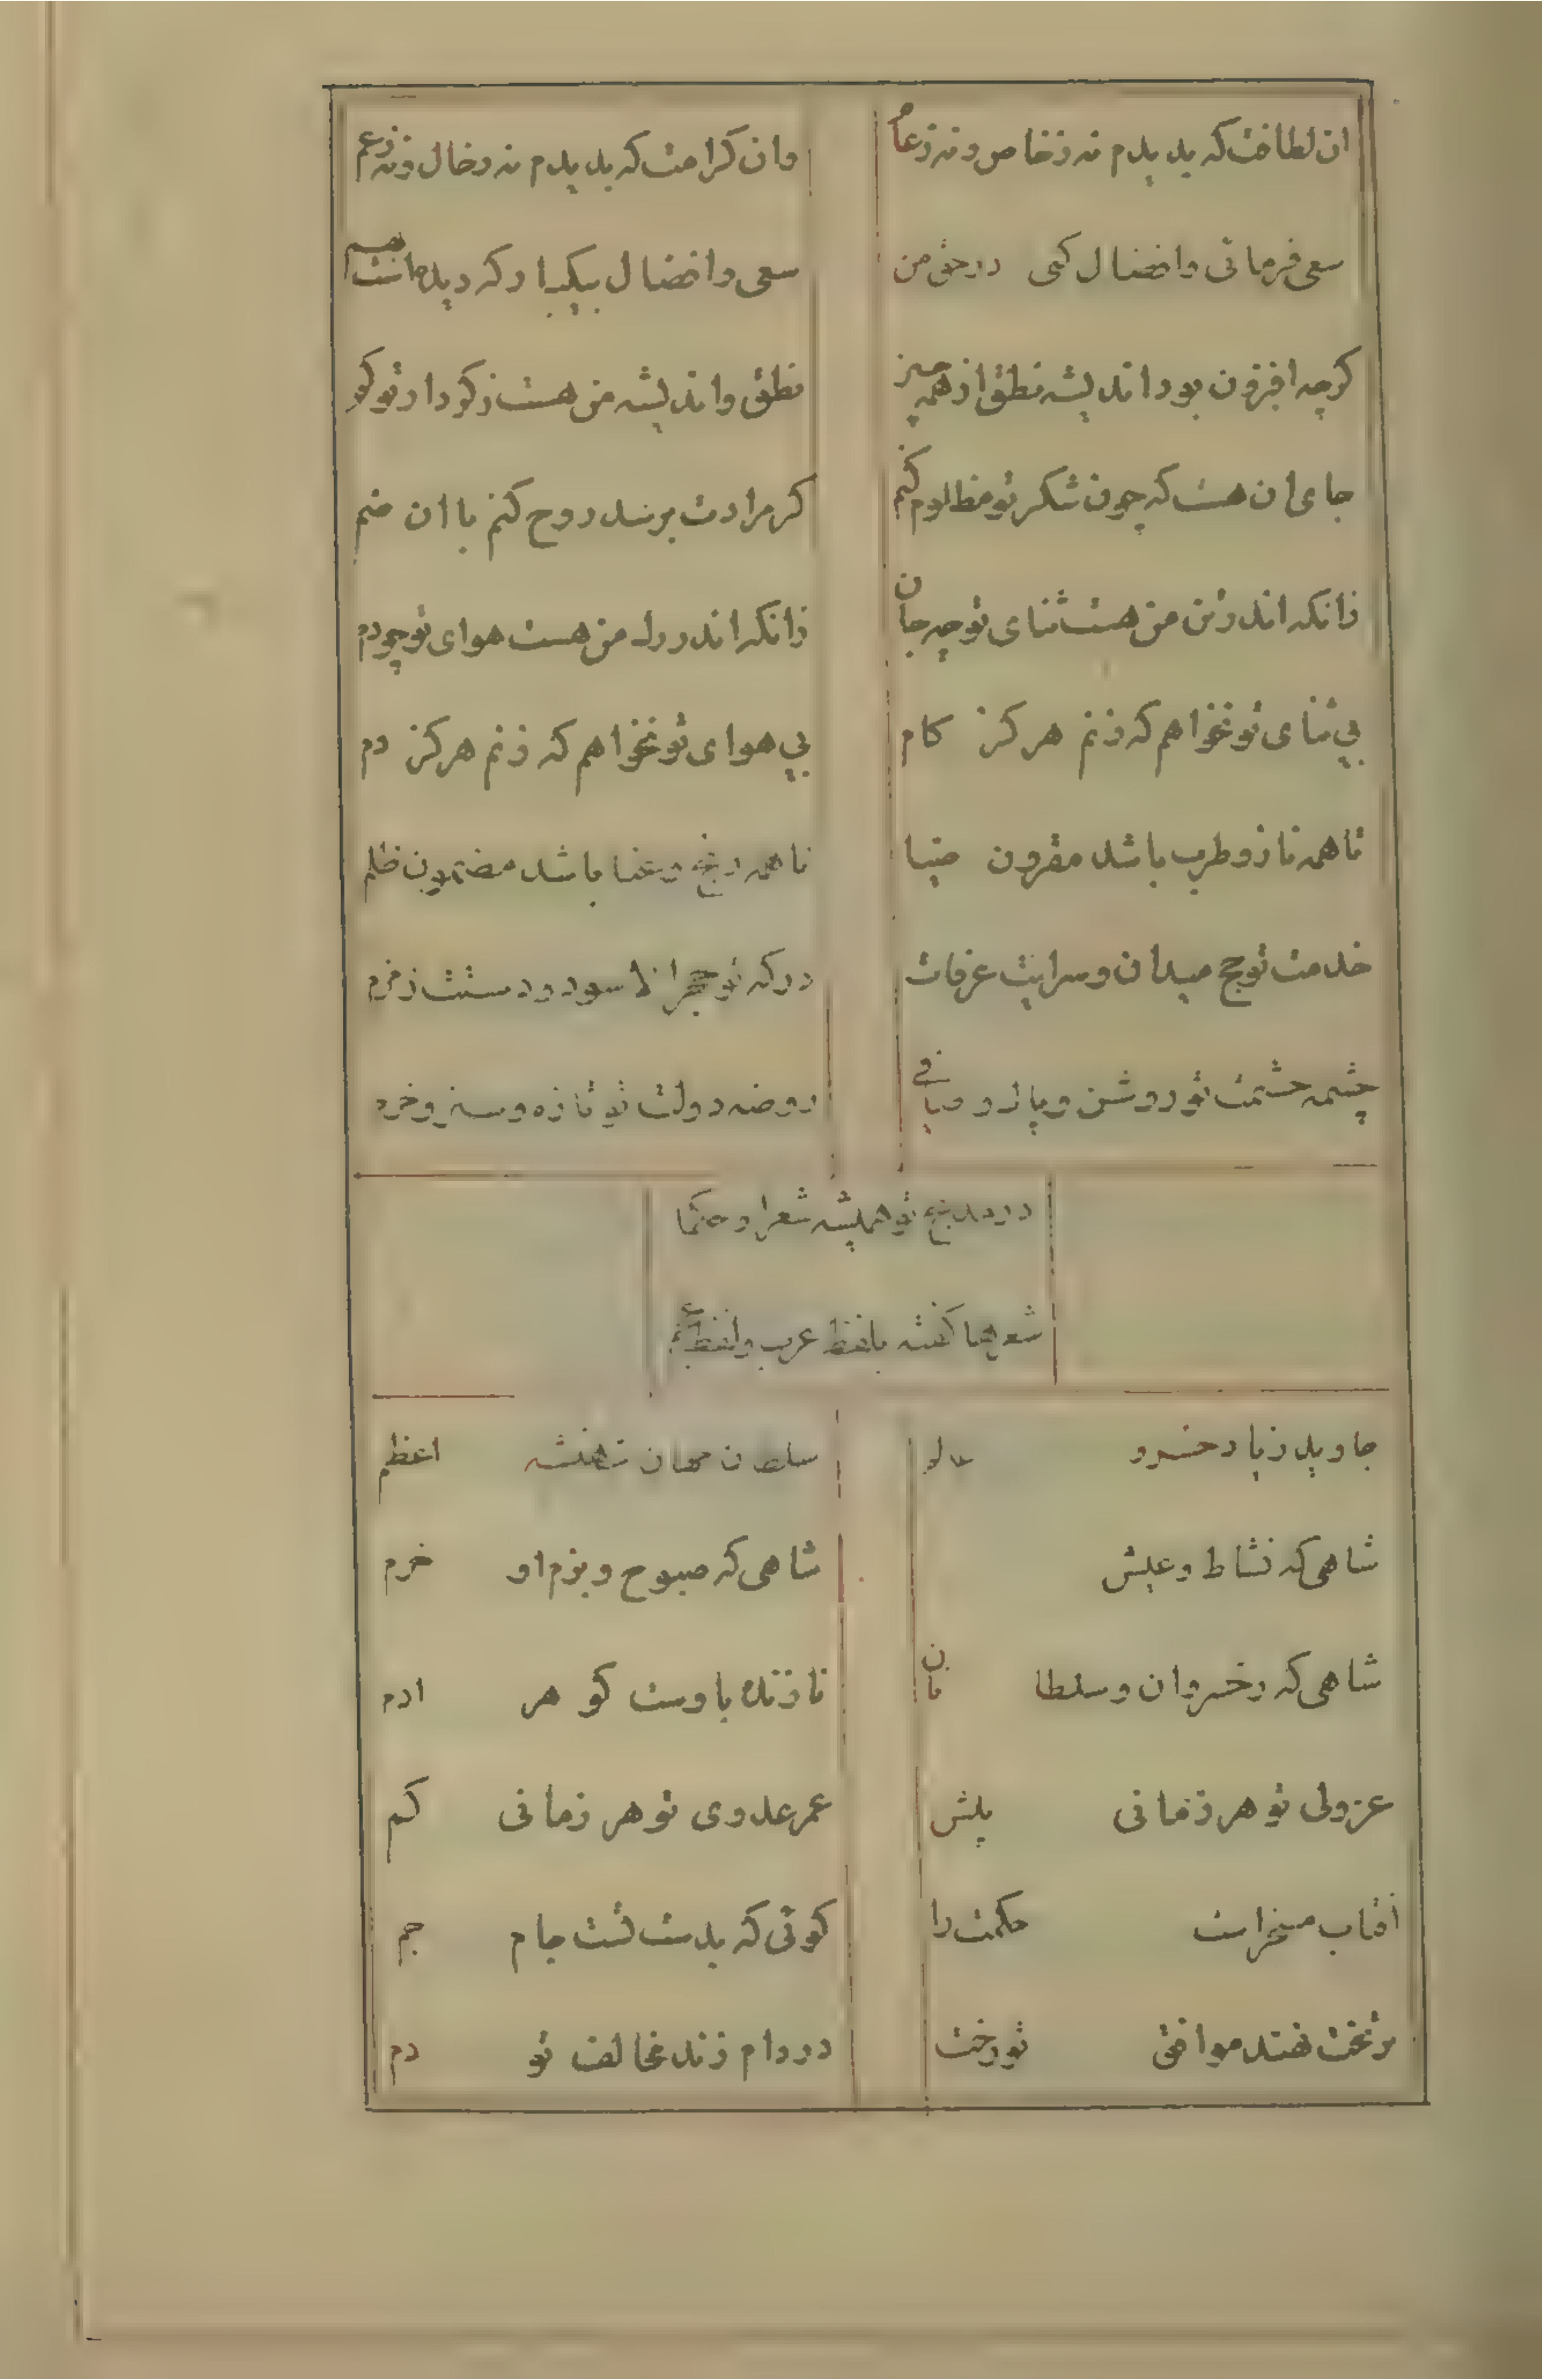 ان لطافت که بدیدم نه زخاص و نه زعام
وان کرامت که بدیدم نه زخال و نه زعم
سعی فرمائی وافضال کنی در حق من
سعی وافضال بیکبار که دیده است
کرچه افزون بود اندیشه نطق از همه چیز
نطق واندیشه من هست زکردار تو کم
جای ان هست که چون شکر تو منظوم کنم
کر مرادت برسد روح کنم با ان ضم
زانکه اندر تن من هست ثنای تو چه جان
زانکه اندر دل من هست هوای تو چو دم
بی ثنای تو نخواهم که زنم هرکز کام
بی هوای تو نخواهم که زنم هرکز دم
تا همه ناز و طرب باشد مقرون ضیا
تا همه رنج و عنا باشد مضمون ظلم
خدمت تو حج میدان و سرایت عرفات
درکه تو حجر الاسود و دستت زمزم
چشمه حشمت تو روشن و پاک و صافی
روضه دولت تو تازه و سبز و خرم
در مدیح تو همیشه شعرا و حکما
شعرها کفته بلفظ عرب ولفظ عجم
جاوید زیاد خسرو
سلطان جهان شهنشه اعظم
شاهی که نشاط و عیش
شاهی که صبوح و بزم او خرم
شاهی که زخسروان و سلطانان
نازنده باوست کوهر ادم
عز ولی تو هر زمانی بیش
عمر عدوی تو هر زمانی کم
افتاب مسخر است حکمت را
کوئی که بدست تست جام جم
بر تخت نهند موافق تو رخت
در دام زند مخالف تو دم